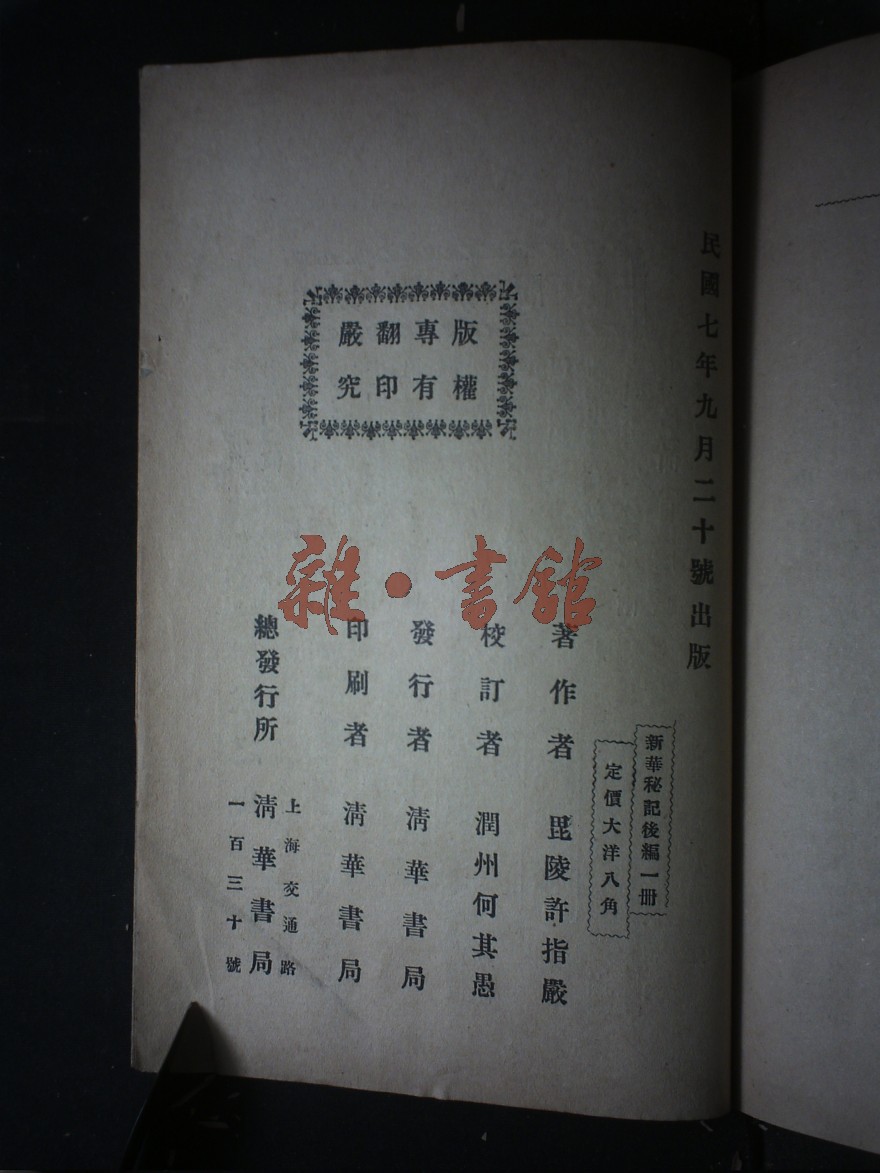 民國七年九月二十號出版
新華秘記後編一冊
定價大洋八角
版權
專有
翻印
嚴究
著作者 毘陵許指嚴
校訂者 潤州何其愚
發行者 清華書局
印刷者 清華書局
總發行所 上海交通路
清華書局
一百三十號
雜·書館